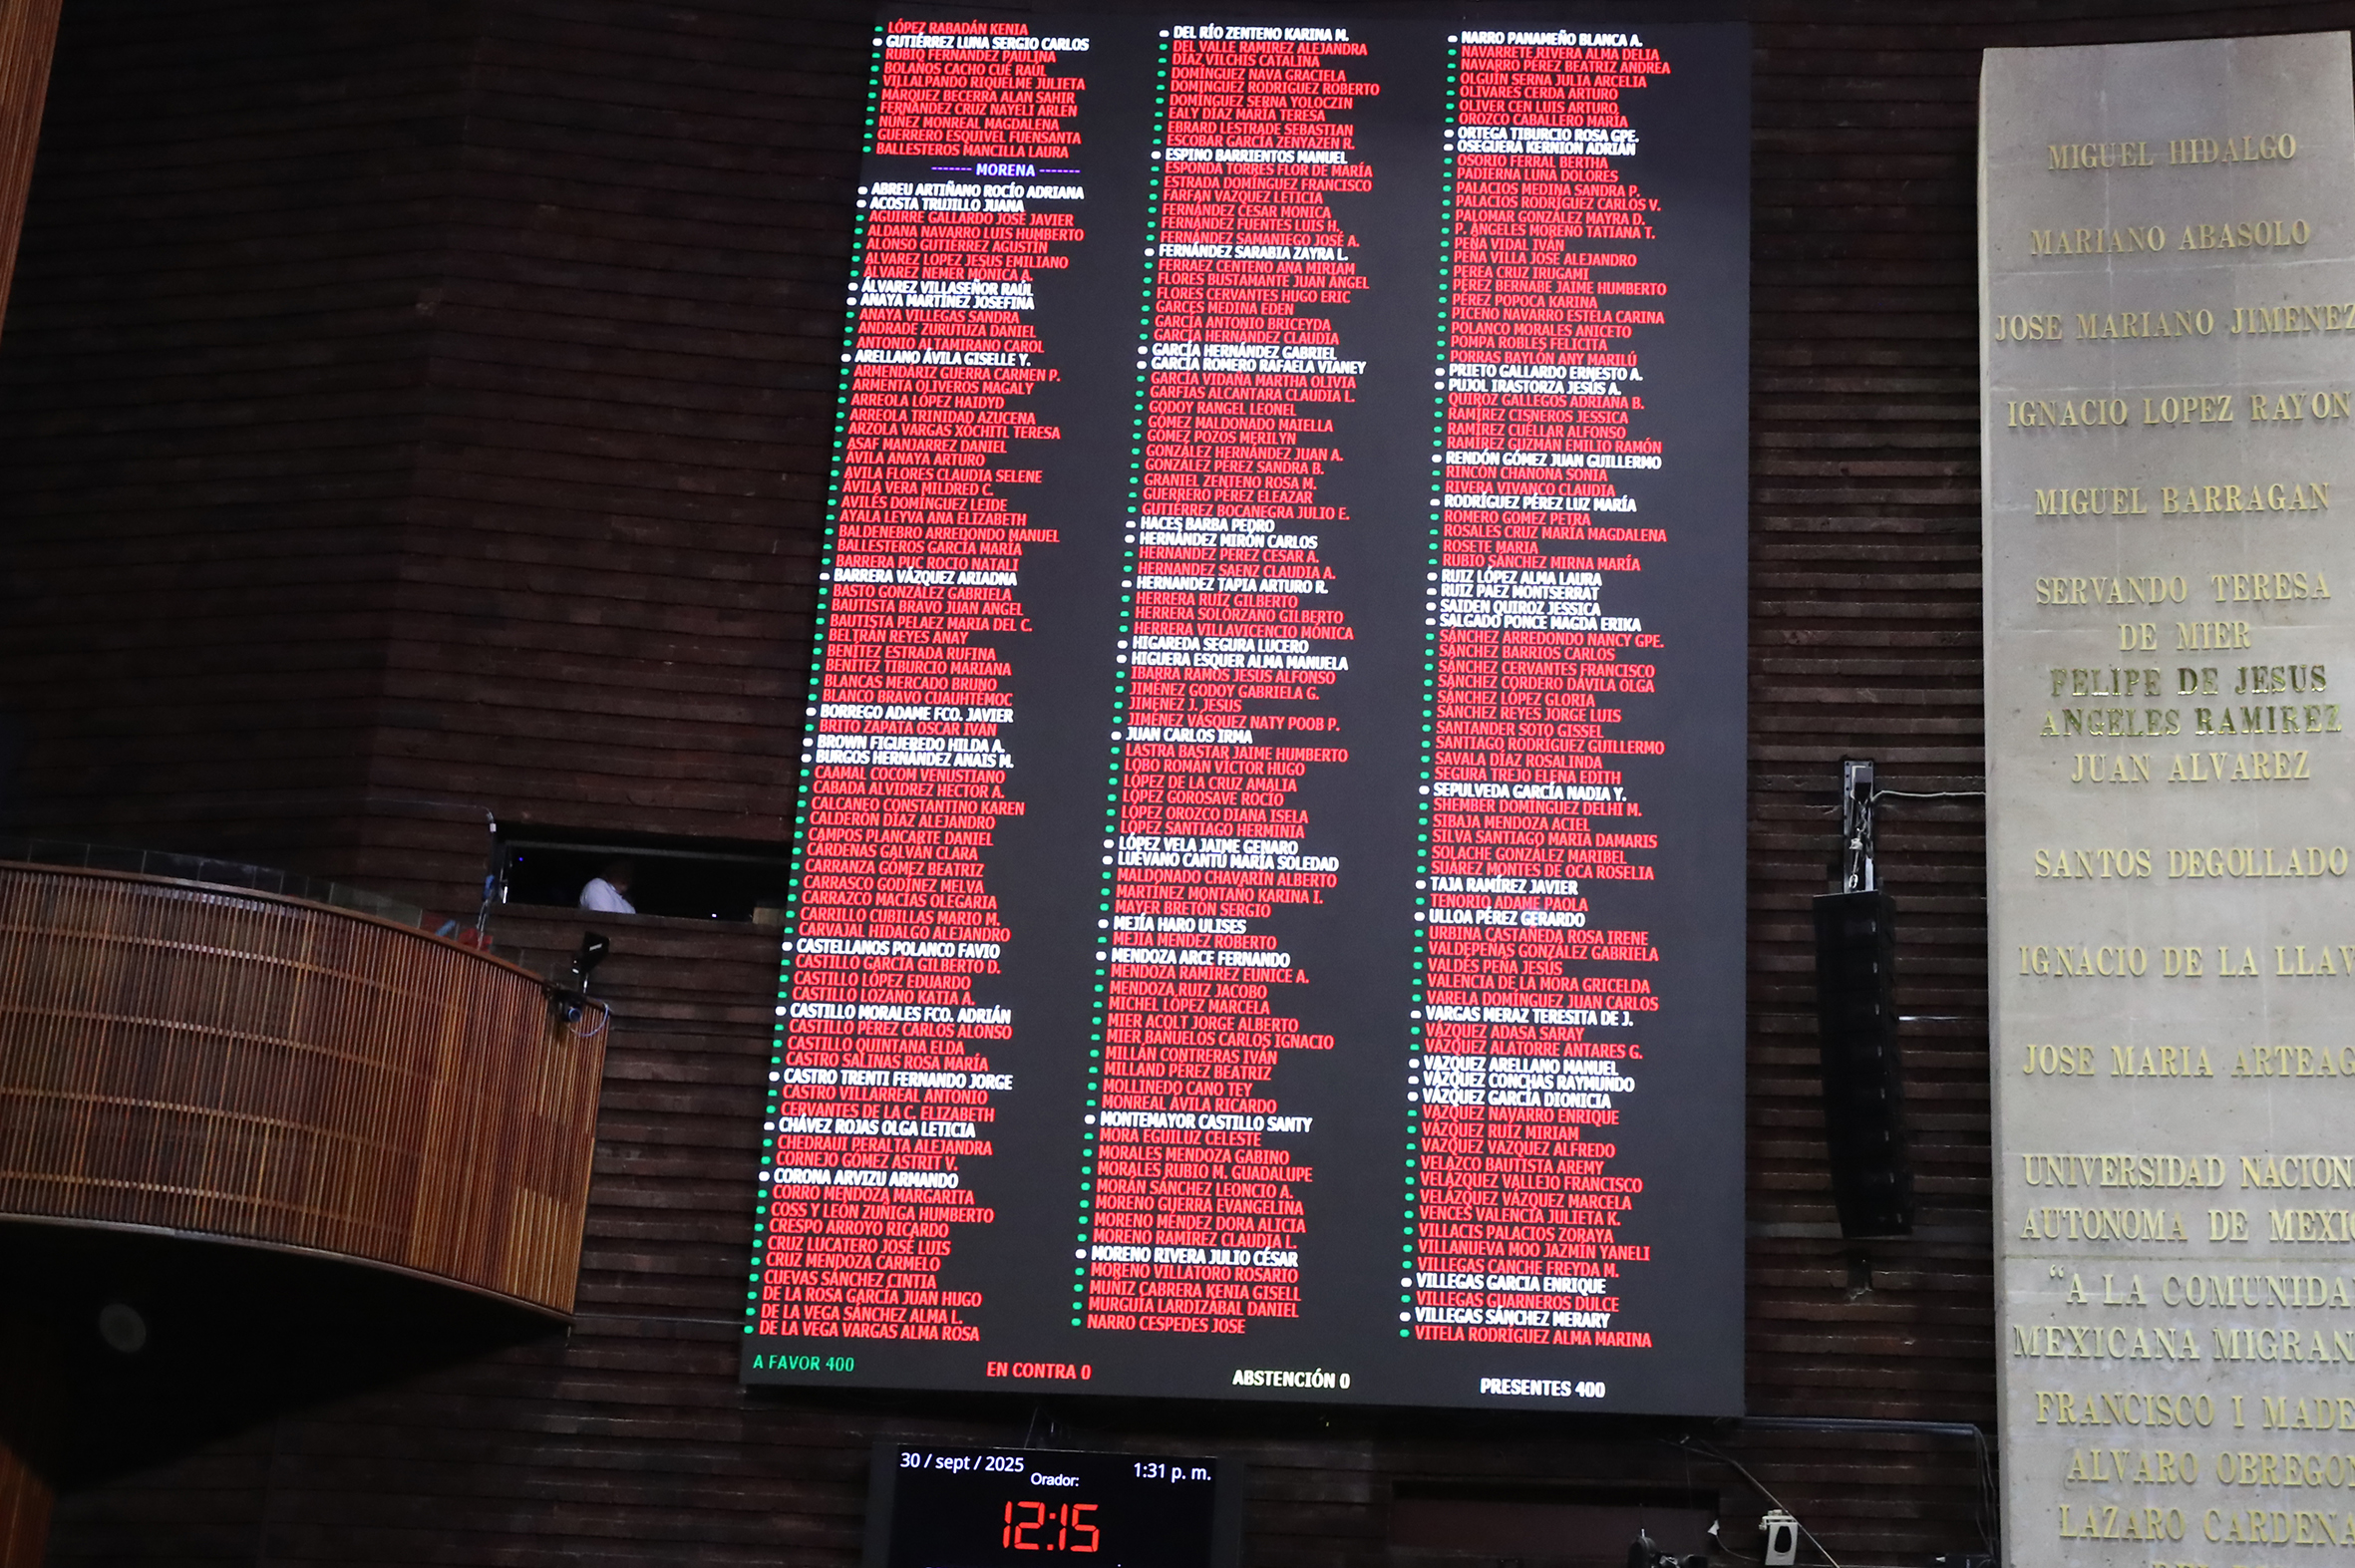 LÓPEZ RABADÁN KENIA
GUTIÉRREZ LUNA SERGIO CARLOS
RUBIO FERNÁNDEZ PAULINA
BOLAÑOS CACHO CUÉ RAÚL
VILLALPANDO RIQUELME JULIETA
MÁRQUEZ BECERRA ALAN SAHIR
FERNÁNDEZ CRUZ NAYELI ARLEN
NÚÑEZ MONREAL MAGDALENA
GUERRERO ESQUIVEL FUENSANTA
BALLESTEROS MANCILLA LAURA
------- MORENA -------
ABREU ARTIÑANO ROCÍO ADRIANA
ACOSTA TRUJILLO JUANA
AGUIRRE GALLARDO JOSÉ JAVIER
ALDANA NAVARRO LUIS HUMBERTO
ALONSO GUTIÉRREZ AGUSTÍN
ÁLVAREZ LÓPEZ JESÚS EMILIANO
ÁLVAREZ NEMER MÓNICA A.
ÁLVAREZ VILLASEÑOR RAÚL
ANAYA MARTÍNEZ JOSEFINA
ANAYA VILLEGAS SANDRA
ANDRADE ZURUTUZA DANIEL
ANTONIO ALTAMIRANO CAROL
ARELLANO ÁVILA GISELLE Y.
ARMENDÁRIZ GUERRA CARMEN P.
ARMENTA OLIVEROS MAGALY
ARREOLA LÓPEZ HAIDYD
ARREOLA TRINIDAD AZUCENA
ARZOLA VARGAS XÓCHITL TERESA
ASAF MANJARREZ DANIEL
ÁVILA ANAYA ARTURO
ÁVILA FLORES CLAUDIA SELENE
ÁVILA VERA MILDRED C.
AVILÉS DOMÍNGUEZ LEIDE
AYALA LEYVA ANA ELIZABETH
BALDENEBRO ARREDONDO MANUEL
BALLESTEROS GARCÍA MARÍA
BARRERA PUC ROCÍO NATALI
BARRERA VÁZQUEZ ARIADNA
BASTO GONZÁLEZ GABRIELA
BAUTISTA BRAVO JUAN ÁNGEL
BAUTISTA PELÁEZ MARÍA DEL C.
BELTRÁN REYES ANAY
BENÍTEZ ESTRADA RUFINA
BENÍTEZ TIBURCIO MARIANA
BLANCAS MERCADO BRUNO
BLANCO BRAVO CUAUHTÉMOC
BORREGO ADAME FCO. JAVIER
BRITO ZAPATA ÓSCAR IVÁN
BROWN FIGUEREDO HILDA A.
BURGOS HERNÁNDEZ ANAIS M.
CAAMAL COCOM VENUSTIANO
CABADA ALVÍDREZ HÉCTOR A.
CALCÁNEO CONSTANTINO KAREN
CALDERÓN DÍAZ ALEJANDRO
CAMPOS PLANCARTE DANIEL
CÁRDENAS GALVÁN CLARA
CARRANZA GÓMEZ BEATRIZ
CARRASCO GODÍNEZ MELVA
CARRAZCO MACÍAS OLEGARIA
CARRILLO CUBILLAS MARIO M.
CARVAJAL HIDALGO ALEJANDRO
CASTELLANOS POLANCO FAVIO
CASTILLO GARCÍA GILBERTO D.
CASTILLO LÓPEZ EDUARDO
CASTILLO LOZANO KATIA A.
CASTILLO MORALES FCO. ADRIÁN
CASTILLO PÉREZ CARLOS ALONSO
CASTILLO QUINTANA ELDA
CASTRO SALINAS ROSA MARÍA
CASTRO TRENTI FERNANDO JORGE
CASTRO VILLARREAL ANTONIO
CERVANTES DE LA C. ELIZABETH
CHÁVEZ ROJAS OLGA LETICIA
CHEDRAUI PERALTA ALEJANDRA
CORNEJO GÓMEZ ASTRIT V.
CORONA ARVIZU ARMANDO
CORRO MENDOZA MARGARITA
COSS Y LEÓN ZÚÑIGA HUMBERTO
CRESPO ARROYO RICARDO
CRUZ LUCATERO JOSÉ LUIS
CRUZ MENDOZA CARMELO
CUEVAS SÁNCHEZ CINTIA
DE LA ROSA GARCÍA JUAN HUGO
DE LA VEGA SÁNCHEZ ALMA L.
DE LA VEGA VARGAS ALMA ROSA
DEL RÍO ZENTENO KARINA M.
DEL VALLE RAMÍREZ ALEJANDRA
DÍAZ VILCHIS CATALINA
DOMÍNGUEZ NAVA GRACIELA
DOMÍNGUEZ RODRÍGUEZ ROBERTO
DOMÍNGUEZ SERNA YOLOCZIN
EALY DÍAZ MARÍA TERESA
EBRARD LESTRADE SEBASTIÁN
ESCOBAR GARCÍA ZENYAZEN R.
ESPINO BARRIENTOS MANUEL
ESPONDA TORRES FLOR DE MARÍA
ESTRADA DOMÍNGUEZ FRANCISCO
FARFÁN VÁZQUEZ LETICIA
FERNÁNDEZ CÉSAR MÓNICA
FERNÁNDEZ FUENTES LUIS H.
FERNÁNDEZ SAMANIEGO JOSÉ A.
FERNÁNDEZ SARABIA ZAYRA L.
FERRÁEZ CENTENO ANA MIRIAM
FLORES BUSTAMANTE JUAN ÁNGEL
FLORES CERVANTES HUGO ERIC
GARCÉS MEDINA EDÉN
GARCÍA ANTONIO BRICEYDA
GARCÍA HERNÁNDEZ CLAUDIA
GARCÍA HERNÁNDEZ GABRIEL
GARCÍA ROMERO RAFAELA VIANEY
GARCÍA VIDAÑA MARTHA OLIVIA
GARFIAS ALCÁNTARA CLAUDIA L.
GODOY RANGEL LEONEL
GÓMEZ MALDONADO MAIELLA
GÓMEZ POZOS MERILYN
GONZÁLEZ HERNÁNDEZ JUAN A.
GONZÁLEZ PÉREZ SANDRA B.
GRANIEL ZENTENO ROSA M.
GUERRERO PÉREZ ELEAZAR
GUTIÉRREZ BOCANEGRA JULIO E.
HACES BARBA PEDRO
HERNÁNDEZ MIRÓN CARLOS
HERNÁNDEZ PÉREZ CÉSAR A.
HERNÁNDEZ SÁENZ CLAUDIA A.
HERNANDEZ TAPIA ARTURO R.
HERRERA RUÍZ GILBERTO
HERRERA SOLÓRZANO GILBERTO
HERRERA VILLAVICENCIO MÓNICA
HIGAREDA SEGURA LUCERO
HIGUERA ESQUER ALMA MANUELA
IBARRA RAMOS JESÚS ALFONSO
JIMÉNEZ GODOY GABRIELA G.
JIMÉNEZ J. JESÚS
JIMÉNEZ VÁSQUEZ NATY POOB P.
JUAN CARLOS IRMA
LASTRA BASTAR JAIME HUMBERTO
LOBO ROMÁN VÍCTOR HUGO
LÓPEZ DE LA CRUZ AMALIA
LÓPEZ GOROSAVE ROCÍO
LÓPEZ OROZCO DIANA ISELA
LÓPEZ SANTIAGO HERMINIA
LÓPEZ VELA JAIME GENARO
LUÉVANO CANTÚ MARÍA SOLEDAD
MALDONADO CHAVARÍN ALBERTO
MARTÍNEZ MONTAÑO KARINA I.
MAYER BRETÓN SERGIO
MEJÍA HARO ULISES
MEJÍA MÉNDEZ ROBERTO
MENDOZA ARCE FERNANDO
MENDOZA RAMÍREZ EUNICE A.
MENDOZA RUIZ JACOBO
MICHEL LÓPEZ MARCELA
MIER ACOLT JORGE ALBERTO
MIER BAÑUELOS CARLOS IGNACIO
MILLÁN CONTRERAS IVÁN
MILLAND PÉREZ BEATRIZ
MOLLINEDO CANO TEY
MONREAL ÁVILA RICARDO
MONTEMAYOR CASTILLO SANTY
MORA EGUILUZ CELESTE
MORALES MENDOZA GABINO
MORALES RUBIO M. GUADALUPE
MORÁN SÁNCHEZ LEONCIO A.
MORENO GUERRA EVANGELINA
MORENO MÉNDEZ DORA ALICIA
MORENO RAMÍREZ CLAUDIA L.
MORENO RIVERA JULIO CÉSAR
MORENO VILLATORO ROSARIO
MUÑIZ CABRERA KENIA GISELL
MURGUÍA LARDIZÁBAL DANIEL
NARRO CÉSPEDES JOSÉ
NARRO PANAMEÑO BLANCA A.
NAVARRETE RIVERA ALMA DELIA
NAVARRO PÉREZ BEATRIZ ANDREA
OLGUÍN SERNA JULIA ARCELIA
OLIVARES CERDA ARTURO
OLIVER CEN LUIS ARTURO
OROZCO CABALLERO MARÍA
ORTEGA TIBURCIO ROSA GPE.
OSEGUERA KERNION ADRIÁN
OSORIO FERRAL BERTHA
PADIERNA LUNA DOLORES
PALACIOS MEDINA SANDRA P.
PALACIOS RODRÍGUEZ CARLOS V.
PALOMAR GONZÁLEZ MAYRA D.
P. ÁNGELES MORENO TATIANA T.
PEÑA VIDAL IVÁN
PEÑA VILLA JOSÉ ALEJANDRO
PEREA CRUZ IRUGAMI
PÉREZ BERNABE JAIME HUMBERTO
PÉREZ POPOCA KARINA
PICENO NAVARRO ESTELA CARINA
POLANCO MORALES ANICETO
POMPA ROBLES FELICITA
PORRAS BAYLÓN ANY MARILÚ
PRIETO GALLARDO ERNESTO A.
PUJOL IRASTORZA JESÚS A.
QUIROZ GALLEGOS ADRIANA B.
RAMÍREZ CISNEROS JESSICA
RAMÍREZ CUÉLLAR ALFONSO
RAMÍREZ GUZMÁN EMILIO RAMÓN
RENDÓN GÓMEZ JUAN GUILLERMO
RINCÓN CHANONA SONIA
RIVERA VIVANCO CLAUDIA
RODRÍGUEZ PÉREZ LUZ MARÍA
ROMERO GÓMEZ PETRA
ROSALES CRUZ MARÍA MAGDALENA
ROSETE MARÍA
RUBIO SÁNCHEZ MIRNA MARÍA
RUIZ LÓPEZ ALMA LAURA
RUIZ PÁEZ MONTSERRAT
SAIDEN QUIROZ JESSICA
SALGADO PONCE MAGDA ERIKA
SÁNCHEZ ARREDONDO NANCY GPE.
SÁNCHEZ BARRIOS CARLOS
SÁNCHEZ CERVANTES FRANCISCO
SÁNCHEZ CORDERO DÁVILA OLGA
SÁNCHEZ LÓPEZ GLORIA
SÁNCHEZ REYES JORGE LUIS
SANTANDER SOTO GISSEL
SANTIAGO RODRÍGUEZ GUILLERMO
SAVALA DÍAZ ROSALINDA
SEGURA TREJO ELENA EDITH
SEPÚLVEDA GARCÍA NADIA Y.
SHEMBER DOMÍNGUEZ DELHI M.
SIBAJA MENDOZA ACIEL
SILVA SANTIAGO MARÍA DAMARIS
SOLACHE GONZÁLEZ MARIBEL
SUÁREZ MONTES DE OCA ROSELIA
TAJA RAMÍREZ JAVIER
TENORIO ADAME PAOLA
ULLOA PÉREZ GERARDO
URBINA CASTAÑEDA ROSA IRENE
VALDEPEÑAS GONZÁLEZ GABRIELA
VALDÉS PEÑA JESÚS
VALENCIA DE LA MORA GRICELDA
VARELA DOMÍNGUEZ JUAN CARLOS
VARGAS MERAZ TERESITA DE J.
VÁZQUEZ ADASA SARAY
VÁZQUEZ ALATORRE ANTARES G.
VÁZQUEZ ARELLANO MANUEL
VÁZQUEZ CONCHAS RAYMUNDO
VÁZQUEZ GARCÍA DIONICIA
VÁZQUEZ NAVARRO ENRIQUE
VÁZQUEZ RUIZ MIRIAM
VÁZQUEZ VÁZQUEZ ALFREDO
VELAZCO BAUTISTA AREMY
VELÁZQUEZ VALLEJO FRANCISCO
VELÁZQUEZ VÁZQUEZ MARCELA
VENCES VALENCIA JULIETA K.
VILLACIS PALACIOS ZORAYA
VILLANUEVA MOO JAZMÍN YANELI
VILLEGAS CANCHÉ FREYDA M.
VILLEGAS GARCIA ENRIQUE
VILLEGAS GUARNEROS DULCE
VILLEGAS SÁNCHEZ MERARY
VITELA RODRÍGUEZ ALMA MARINA
A FAVOR 400
EN CONTRA 0
ABSTENCIÓN 0
PRESENTES 400
30 / sept / 2025
1:31 p. m.
Orador:
12:15
MIGUEL HIDALGO
MARIANO ABASOLO
JOSE MARIANO JIMENEZ
IGNACIO LOPEZ RAYON
MIGUEL BARRAGAN
SERVANDO TERESA
DE MIER
FELIPE DE JESUS
ANGELES RAMIREZ
JUAN ALVAREZ
SANTOS DEGOLLADO
IGNACIO DE LA LLAV
JOSE MARIA ARTEAG
UNIVERSIDAD NACION
AUTONOMA DE MEXIC
"A LA COMUNIDA
MEXICANA MIGRAN
FRANCISCO I MADE
ALVARO OBREGON
LAZARO CARDENA